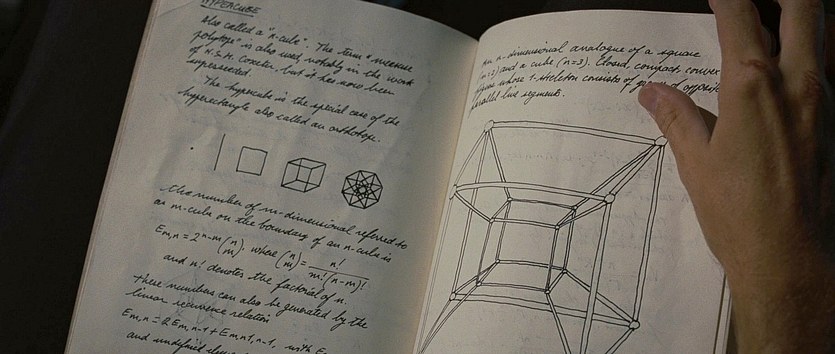 HYPERCUBE
Also called a "n-cube". The term "measure
polytope" is also used, notably in the work
of H.S.M. Coxeter, but it has now been
superseded.
The hypercube is the special case of the
hyperrectangle also called an orthotope.
the number of m-dimensional referred to
an m-cube on the boundary of an n-cube is
Em,n = 2^n-m (n m), where (n m) = n! / m!(n-m)!
and n! denotes the factorial of n.
these numbers can also be generated by the
linear recurrence relation
Em,n = 2Em,n-1 + Em-1,n-1, with E
and undefined
An n-dimensional analogue of a square
(n=2) and a cube (n=3). Closed, compact, convex
whose 1-skeleton consists of of opposite
parallel line segments.